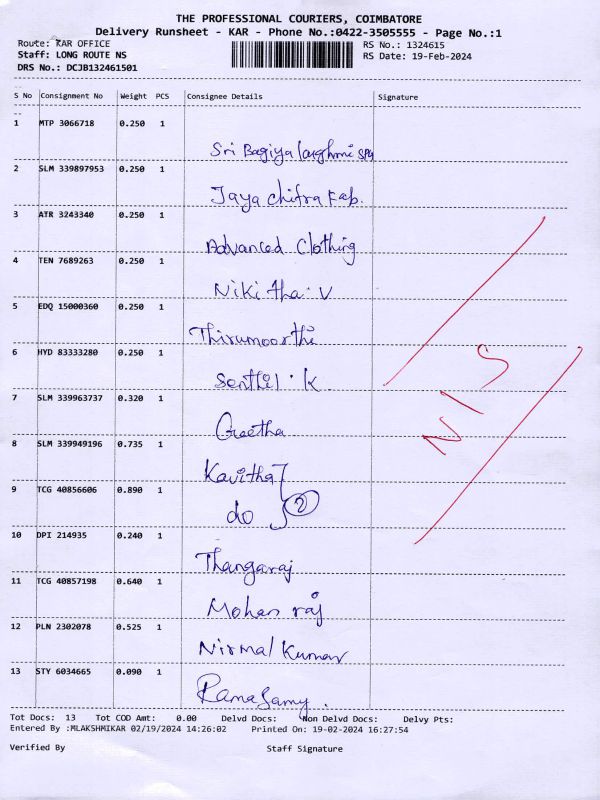 THE PROFESSIONAL COURIERS, COIMBATORE
Delivery Runsheet - KAR - Phone No.:0422-3505555 - Page No.:1
Route: KAR OFFICE RS No.: 1324615
Staff: LONG ROUTE NS RS Date: 19-Feb-2024
DRS No.: DCJB132461501
S No Consignment No Weight PCS Consignee Details Signature
1 MTP 3066718 0.250 1
Sri Bagiya
2 SLM 339897953 0.250 1
Jaya Chitra Fab.
3 ATR 3243340 0.250 1
Advanced Clothing
4 TEN 7689263 0.250 1
Nikitha V
5 EDQ 15000360 0.250 1
Thirumoorthi
6 HYD 83333280 0.250 1
Senthil . K
7 SLM 339963737 0.320 1
N/S
Geetha
8 SLM 339949196 0.735 1
Kavitha
9 TCG 40856606 0.890 1
do 2
10 DPI 214935 0.240 1
Thangaraj
11 TCG 40857198 0.640 1
Mohan raj
12 PLN 2302078 0.525 1
Nirmal Kumar
13 STY 6034665 0.090 1
Ramasamy.
Tot Docs: 13 Tot COD Amt: 0.00 Delvd Docs: Non Delvd Docs: Delvy Pts:
Entered By :MLAKSHMIKAR 02/19/2024 14:26:02 Printed On: 19-02-2024 16:27:54
Verified By Staff Signature